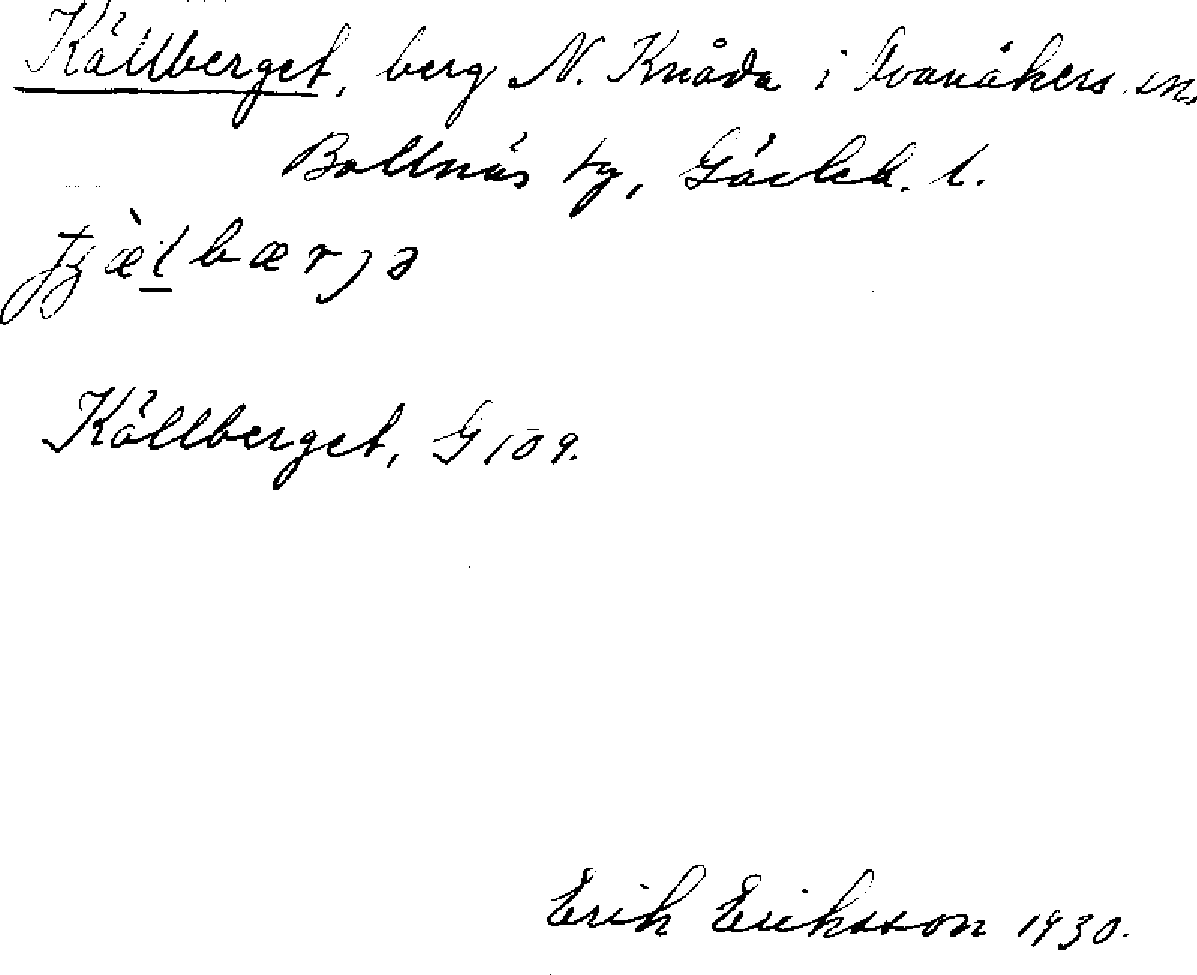 Källberget, berg N. Knåda i Svanåkers sn,
Bollnäs tg, Gävleb. l.
tjæ̀lbærjə
Källberget, G 109.
Erik Eriksson 1930.